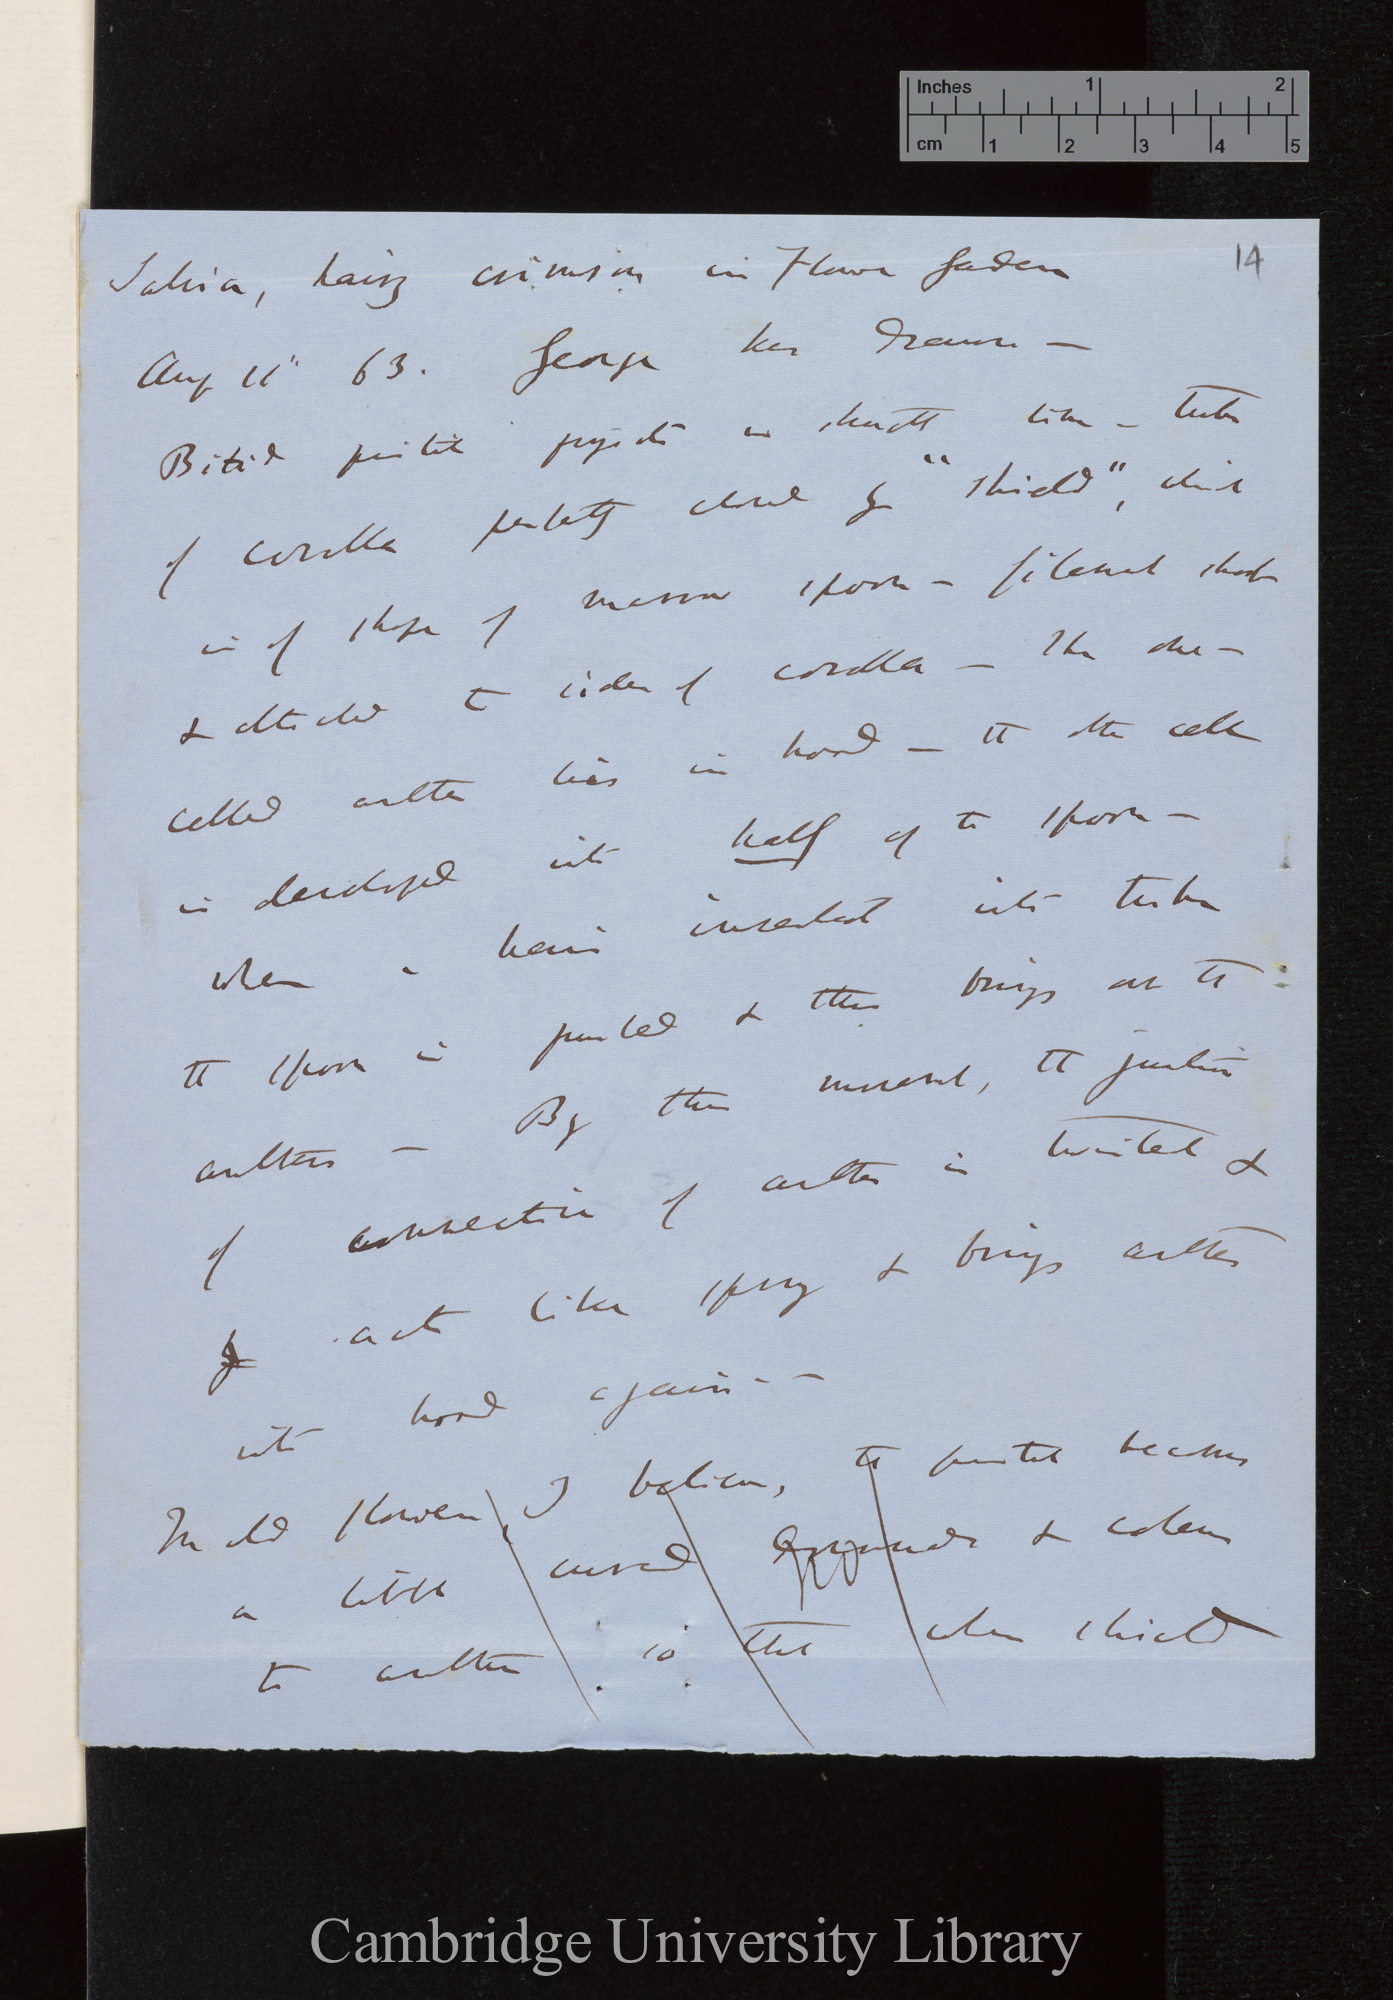 Inches 1 2
cm 1 2 3 4 5
14
Salvia, hairy crimson in Flower Garden
Aug 11" 63. George has drawn —
Bifid pistil projects in straight line — tube
of corolla perfectly closed by "shield", which
is of shape of marrow spoon — filament short
& attached to sides of corolla — The one-
celled anther lies in hood — the other cell
is developed into half of the spoon —
when a being inserted into tube
the spoon is pushed & this brings out the
anthers — By this movement, the junction
of connective of anther is twisted &
acts like spring & brings anther
into hood again — —
In old flowers, I believe, the pistil becomes
a little curved downwards & comes
to anther so that when shield
Cambridge University Library